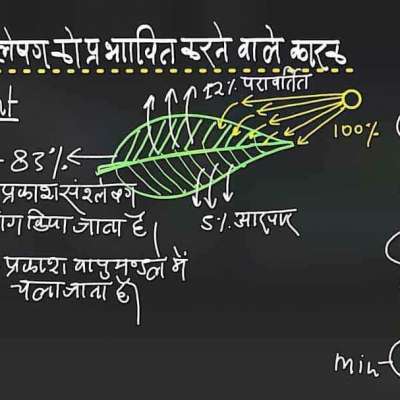 को प्रभावित करने वाले कारक
12% परावर्तित
100%
83%
प्रकाश संश्लेषण
किया जाता है।
5% आरपार
प्रकाश वायुमण्डल में
चला जाता है।
min